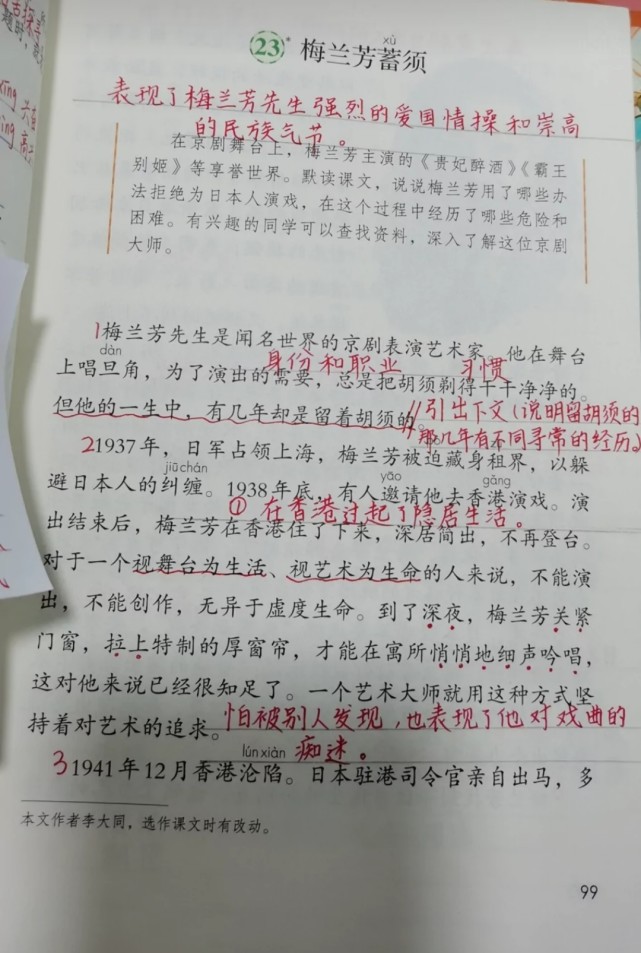 xù
23* 梅兰芳蓄须
表现了梅兰芳先生强烈的爱国情操和崇高
的民族气节。
在京剧舞台上，梅兰芳主演的《贵妃醉酒》《霸王
别姬》等享誉世界。默读课文，说说梅兰芳用了哪些办
法拒绝为日本人演戏，在这个过程中经历了哪些危险和
困难。有兴趣的同学可以查找资料，深入了解这位京剧
大师。
1梅兰芳先生是闻名世界的京剧表演艺术家。他在舞台
dàn
身份和职业 习惯
上唱旦角，为了演出的需要，总是把胡须剃得干干净净的。
但他的一生中，有几年却是留着胡须的。
//引出下文(说明留胡须的
那几年有不同寻常的经历)
2 1937年，日军占领上海，梅兰芳被迫藏身租界，以躲
jiūchán yāo gǎng
避日本人的纠缠。1938年底，有人邀请他去香港演戏。演
①在香港过起了隐居生活。
出结束后，梅兰芳在香港住了下来，深居简出，不再登台。
对于一个视舞台为生活、视艺术为生命的人来说，不能演
出，不能创作，无异于虚度生命。到了深夜，梅兰芳关紧
门窗，拉上特制的厚窗帘，才能在寓所悄悄地细声吟唱，
这对他来说已经很知足了。一个艺术大师就用这种方式坚
持着对艺术的追求。
怕被别人发现，也表现了他对戏曲的
痴迷。
lúnxiàn
3 1941年12月香港沦陷。日本驻港司令官亲自出马，多
本文作者李大同，选作课文时有改动。
99